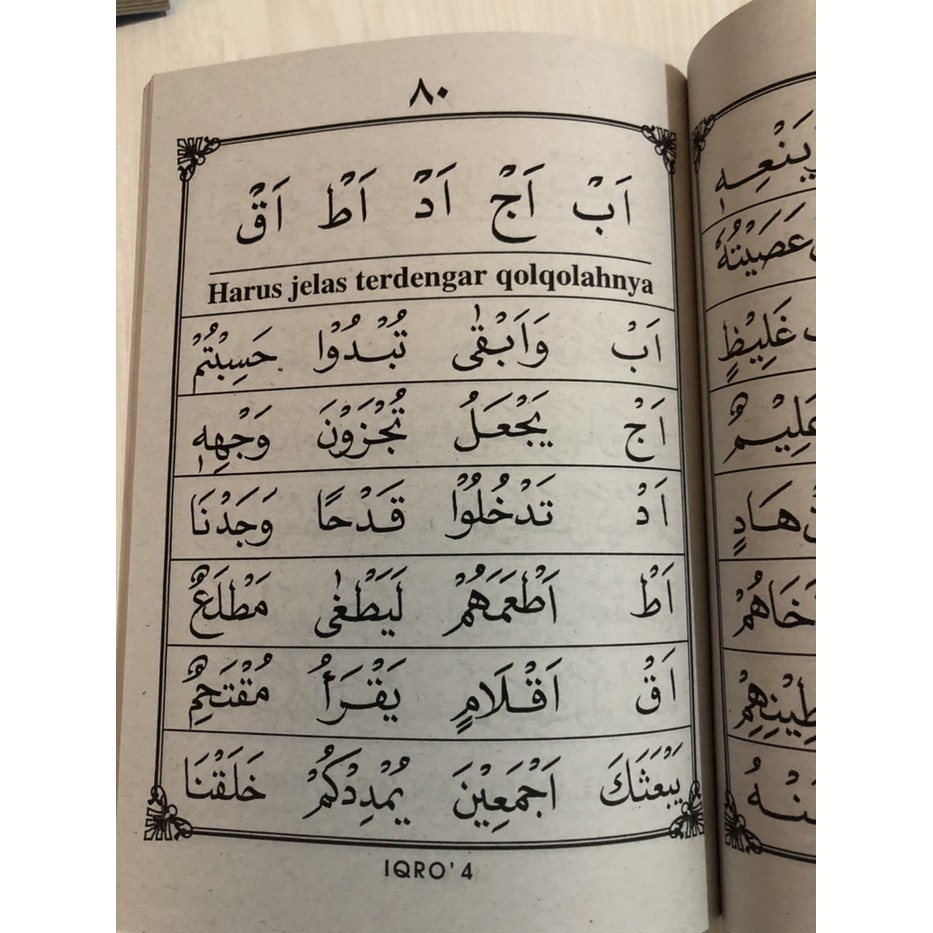 ٨٠
اَبْ اَجْ اَدْ اَطْ اَقْ
Harus jelas terdengar qolqolahnya
اَبْ وَاَبْقٰى تُبْدُوْا حَسِبْتُمْ
اَجْ يَجْعَلُ تُجْزَوْنَ وَجْهِهٖ
اَدْ تَدْخُلُوْا قَدْحًا وَجَدْنَا
اَطْ اَطْعَمَهُمْ لَيَطْغٰى مَطْلَعٌ
اَقْ اَقْلَامٍ يَقْرَأُ مُقْتَحِمٌ
يَبْعَثَكَ اَجْمَعِيْنَ يُمْدِدْكُمْ خَلَقْنَا
IQRO' 4
عَصَيْتُهٗ
غَلِيْظٍ
عَلِيْمٌ
هَادٍ